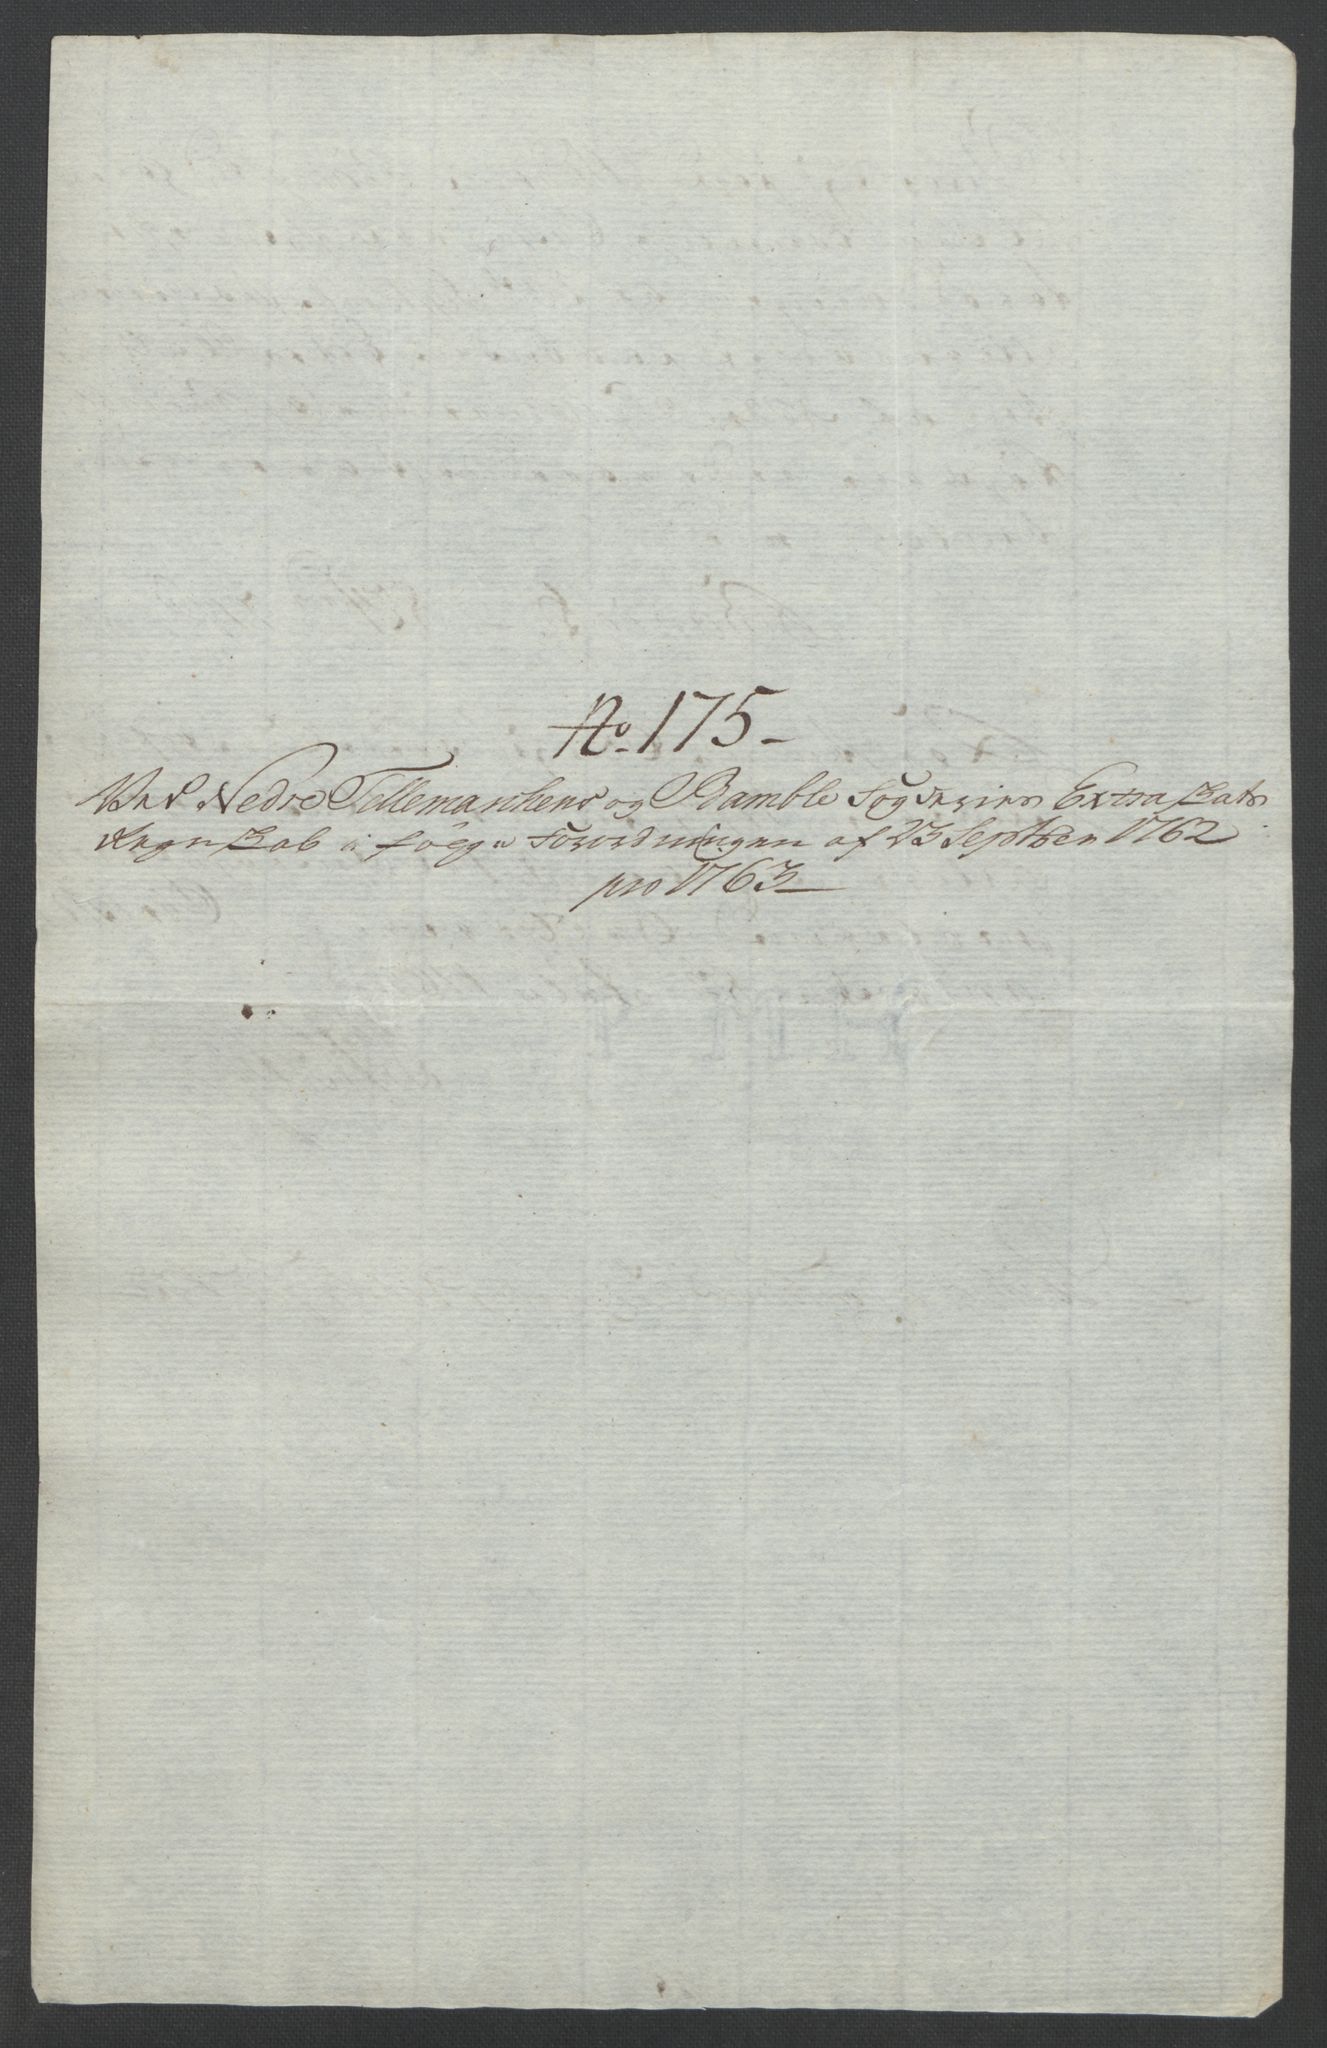 No. 175 -
Ved Nedre Tellemarkens og Bamble Fogderiers Extra skats
Regnskab i følge Forordningen af 23 Septber 1762
pro 1763